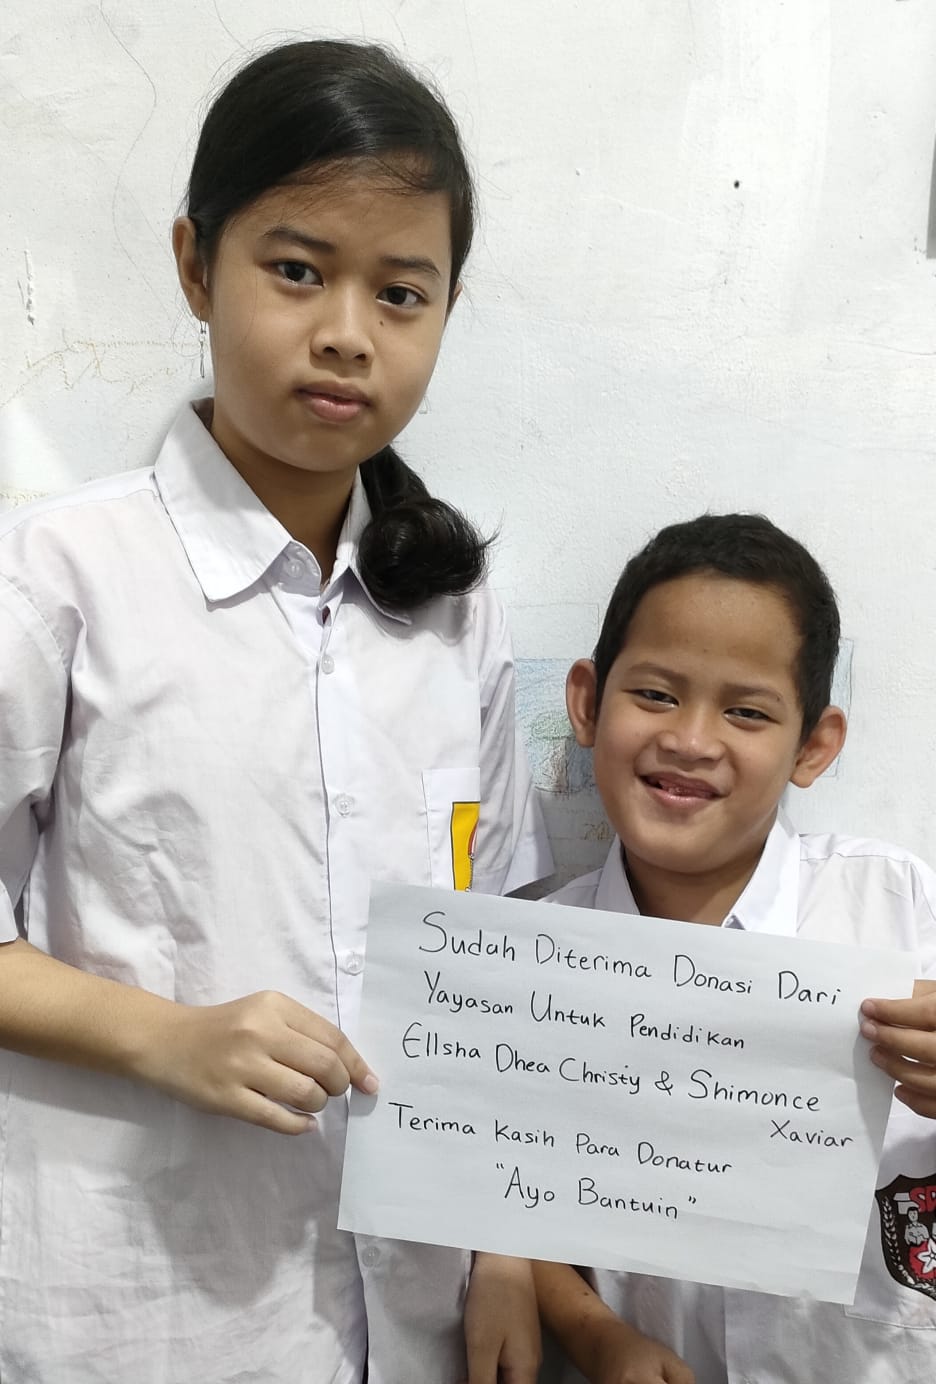 Sudah Diterima Donasi Dari
Yayasan Untuk Pendidikan
Ellsha Dhea Christy & Shimonce
Xaviar
Terima Kasih Para Donatur
"Ayo Bantuin"
SD